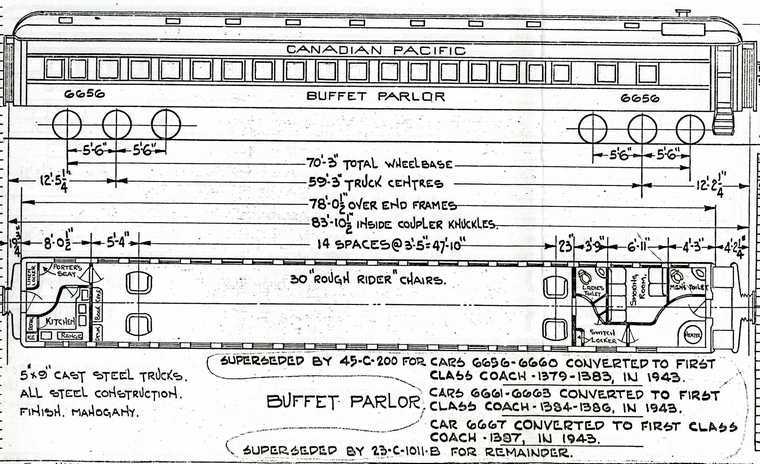 CANADIAN PACIFIC
6656 BUFFET PARLOR 6656
5'-6" 5'-6" 5'-6" 5'-6"
70'-3" TOTAL WHEELBASE
12'-5¼" 59'-3" TRUCK CENTRES 12'-2¼"
78'-0½" OVER END FRAMES
83'-10½" INSIDE COUPLER KNUCKLES.
8'-0½" 5'-4" 14 SPACES @ 3'-5"= 47'-10" 23" 3'-9" 6'-11" 4'-3" 4'-2¼"
PORTER'S SEAT
LINEN LOCKER
30 "ROUGH RIDER" CHAIRS.
LADIES TOILET
SMOKING ROOM.
MEN'S TOILET
KITCHEN
RANGE
SWITCH LOCKER
HEATER
SUPERSEDED BY 45-C-200 FOR CARS 6656-6660 CONVERTED TO FIRST
CLASS COACH -1379-1383, IN 1943.
5"x9" CAST STEEL TRUCKS.
ALL STEEL CONSTRUCTION.
FINISH. MAHOGANY.
BUFFET PARLOR
CARS 6661-6663 CONVERTED TO FIRST
CLASS COACH -1384-1386, IN 1943.
CAR 6667 CONVERTED TO FIRST CLASS
COACH -1387, IN 1943.
SUPERSEDED BY 23-C-1011-B FOR REMAINDER.